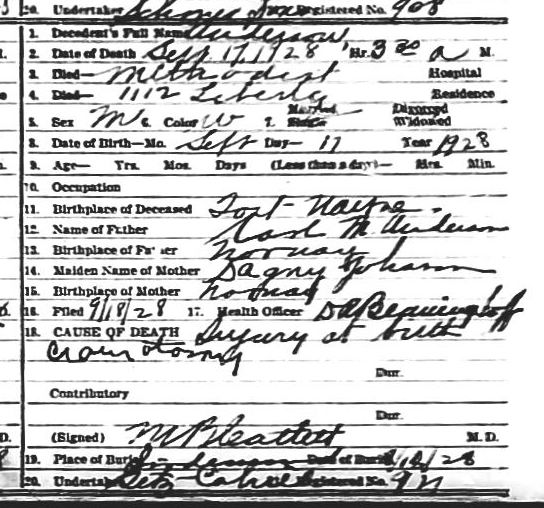 20. Undertaker Registered No. 908
1. Decedent's Full Name Anderson
2. Date of Death Sept 17, 1928 Hr. 3 30 a M.
3. Died— Methodist Hospital
4. Died— 1112 Liberty Residence
5. Sex M 6. Color W 7. Married Single Divorced Widowed
8. Date of Birth—Mo. Sept Day— 17 Year 1928
9. Age— Yrs. Mos. Days (Less than a day)— Hrs. Min.
10. Occupation
11. Birthplace of Deceased Fort Wayne.
12. Name of Father M Anderson
13. Birthplace of Father Norway
14. Maiden Name of Mother Dagny
15. Birthplace of Mother Norway
16. Filed 9/18/28 17. Health Officer
18. CAUSE OF DEATH Injury at birth
Craniotomy
Dur.
Contributory
Dur.
(Signed) M.D.
19. Place of Burial Date of Burial 28
20. Undertaker Registered No.